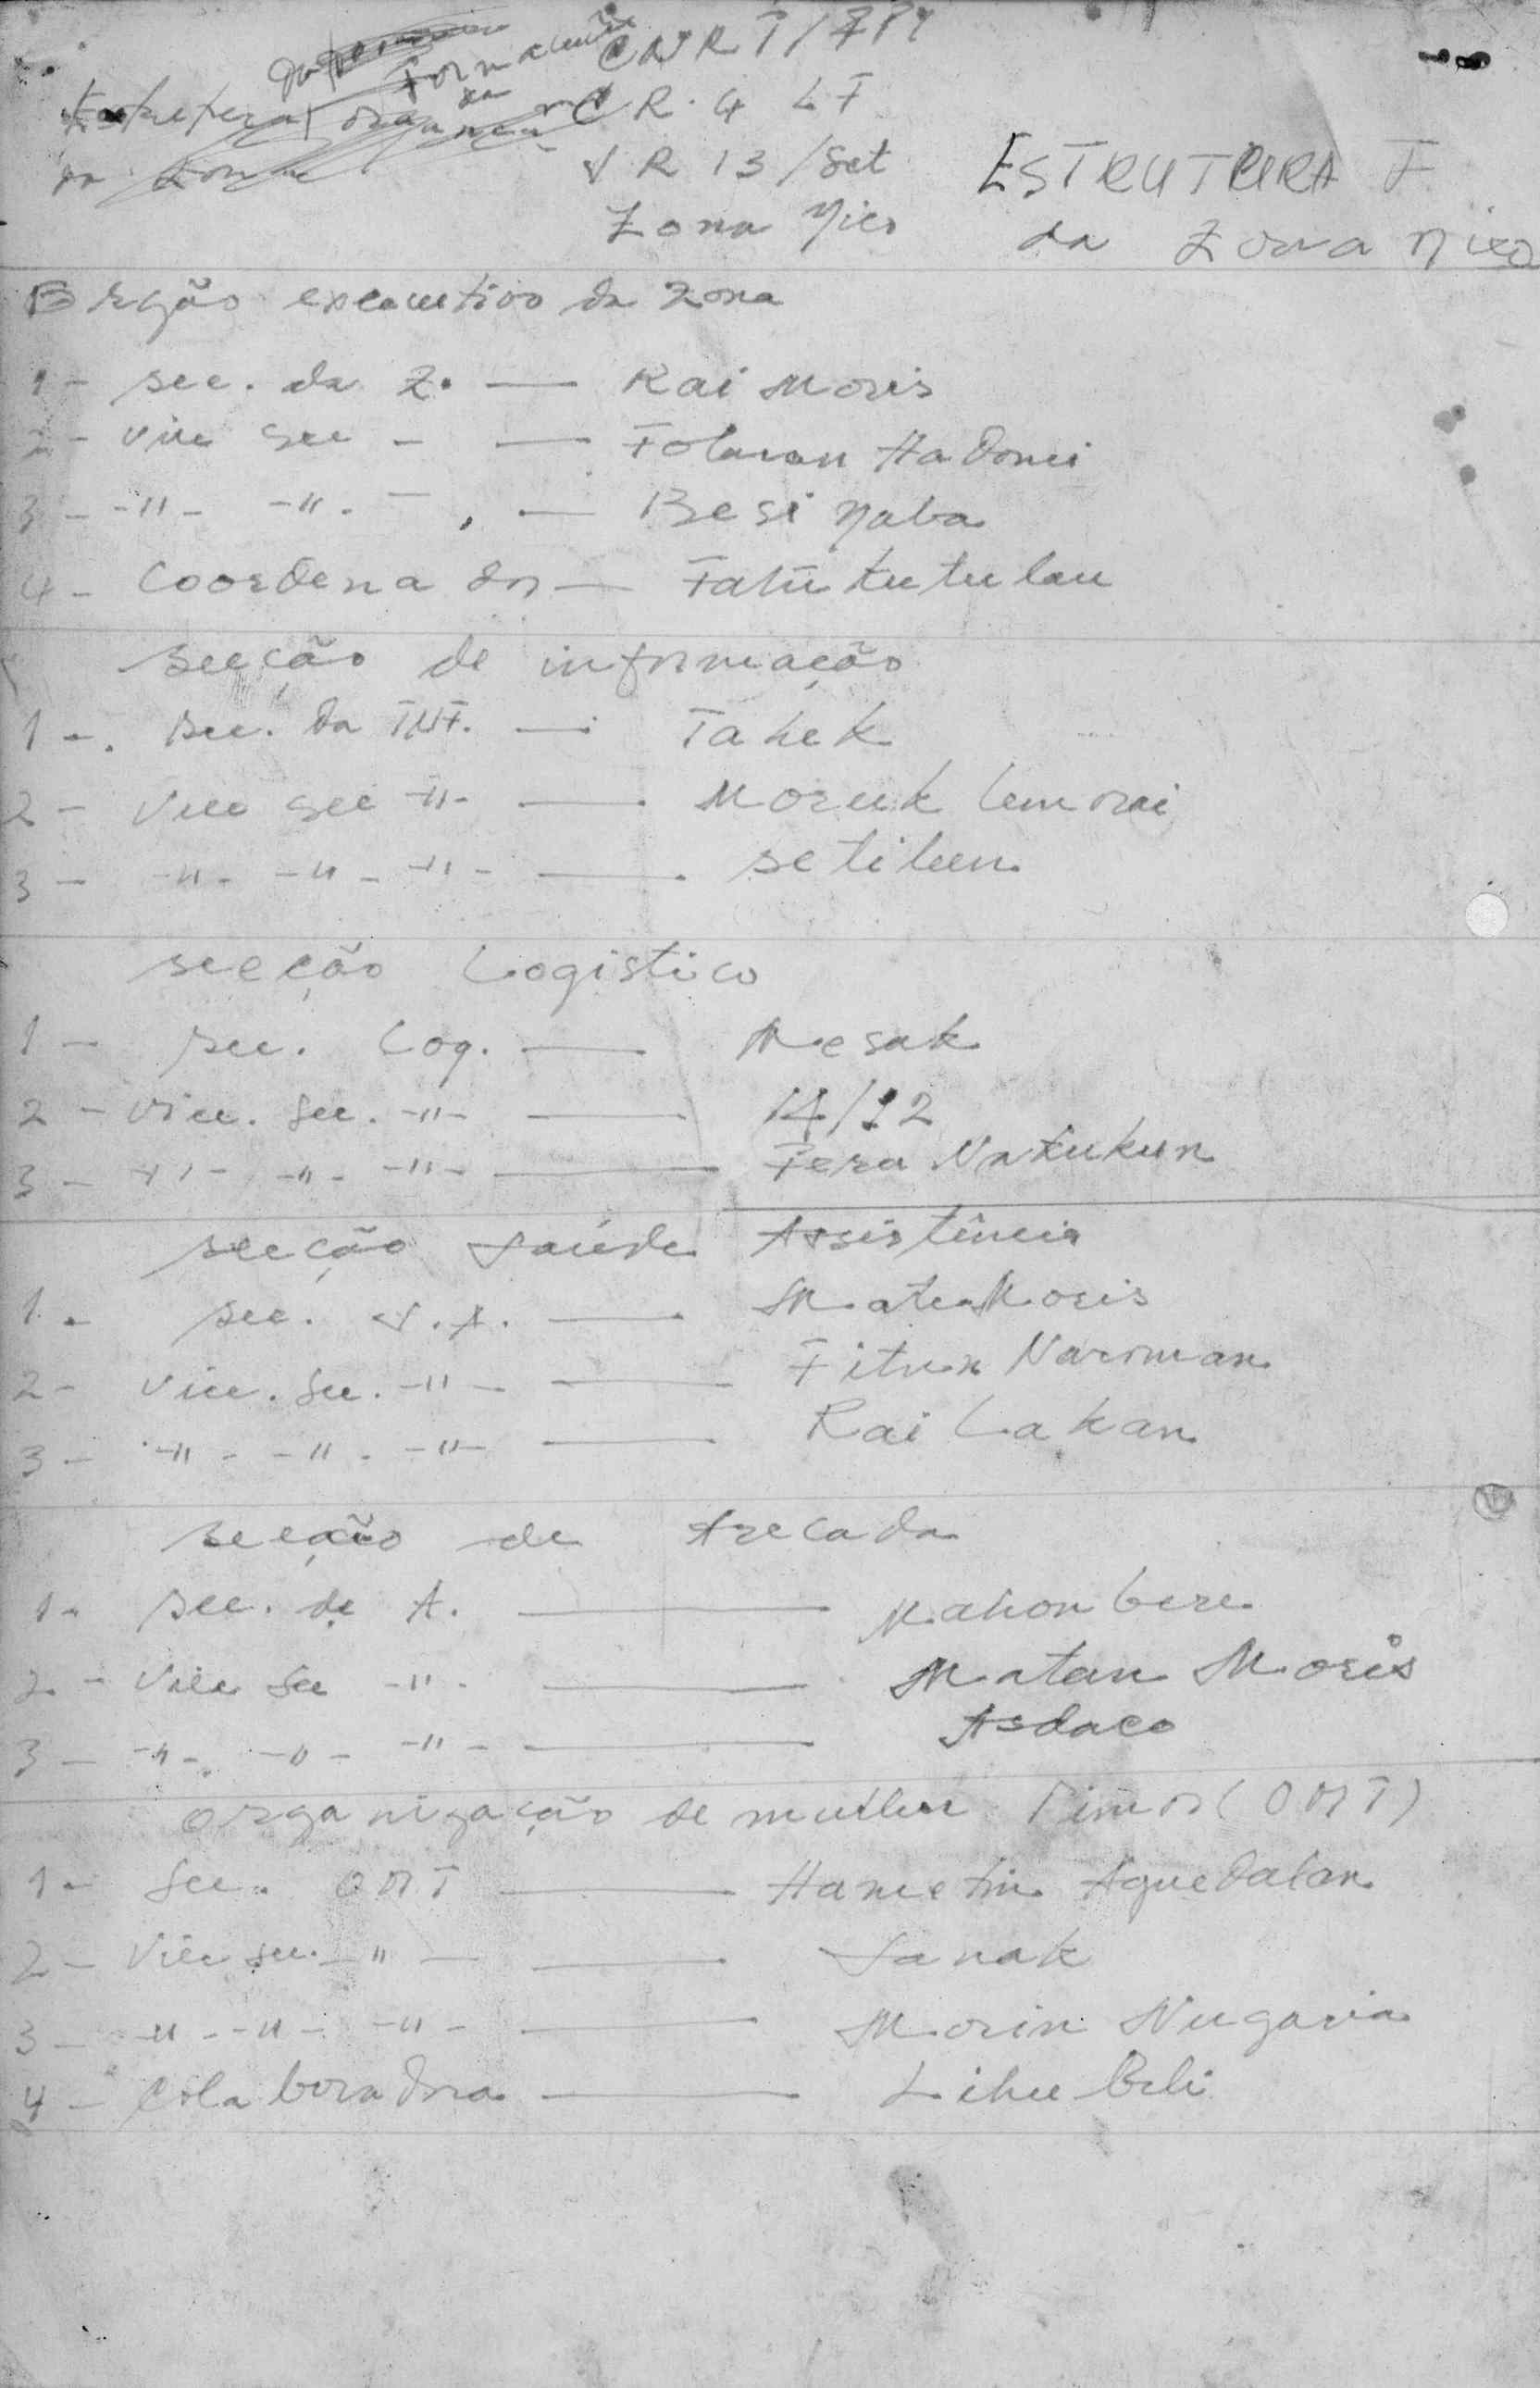 CNRT/FPI
CR. 4 LF
SR 13/Set
Zona Nico
ESTRUTURA F
da Zona Nico
Orgão executivo da zona
1 - sec. da Z. — Rai Moris
2 - Vice sec - — Foluran Hadomi
3 - -"- -"- - — Besi Naba
4 - Coordenador — Fatu tutulau
Secção de informação
1 - sec. da INF. — Tahek
2 - Vice sec -"- — Moruk lemorai
3 - -"- -"- -"- —
Secção Logistico
1 - sec. Log. — Mesak
2 - Vice. sec. -"- — 14/12
3 - -"- -"- -"- — Fera Nakukun
Secção Saúde Assistência
1 - sec. S.A. — Mate Moris
2 - Vice. sec. -"- — Fitun Naroman
3 - -"- -"- -"- — Rai Lakan
Secção de Arecada
1 - sec. de A. — Mahon bere
2 - Vice sec -"- — Matan Moris
3 - -"- -"- -"- — Asdaco
Organização de mulher Timor (OMT)
1 - Sec. OMT — Hametin Aguedalan
2 - Vice sec. -"- — Sanak
3 - -"- -"- -"- — Morin Nugaria
4 - Colaboradora — Lihu Beli